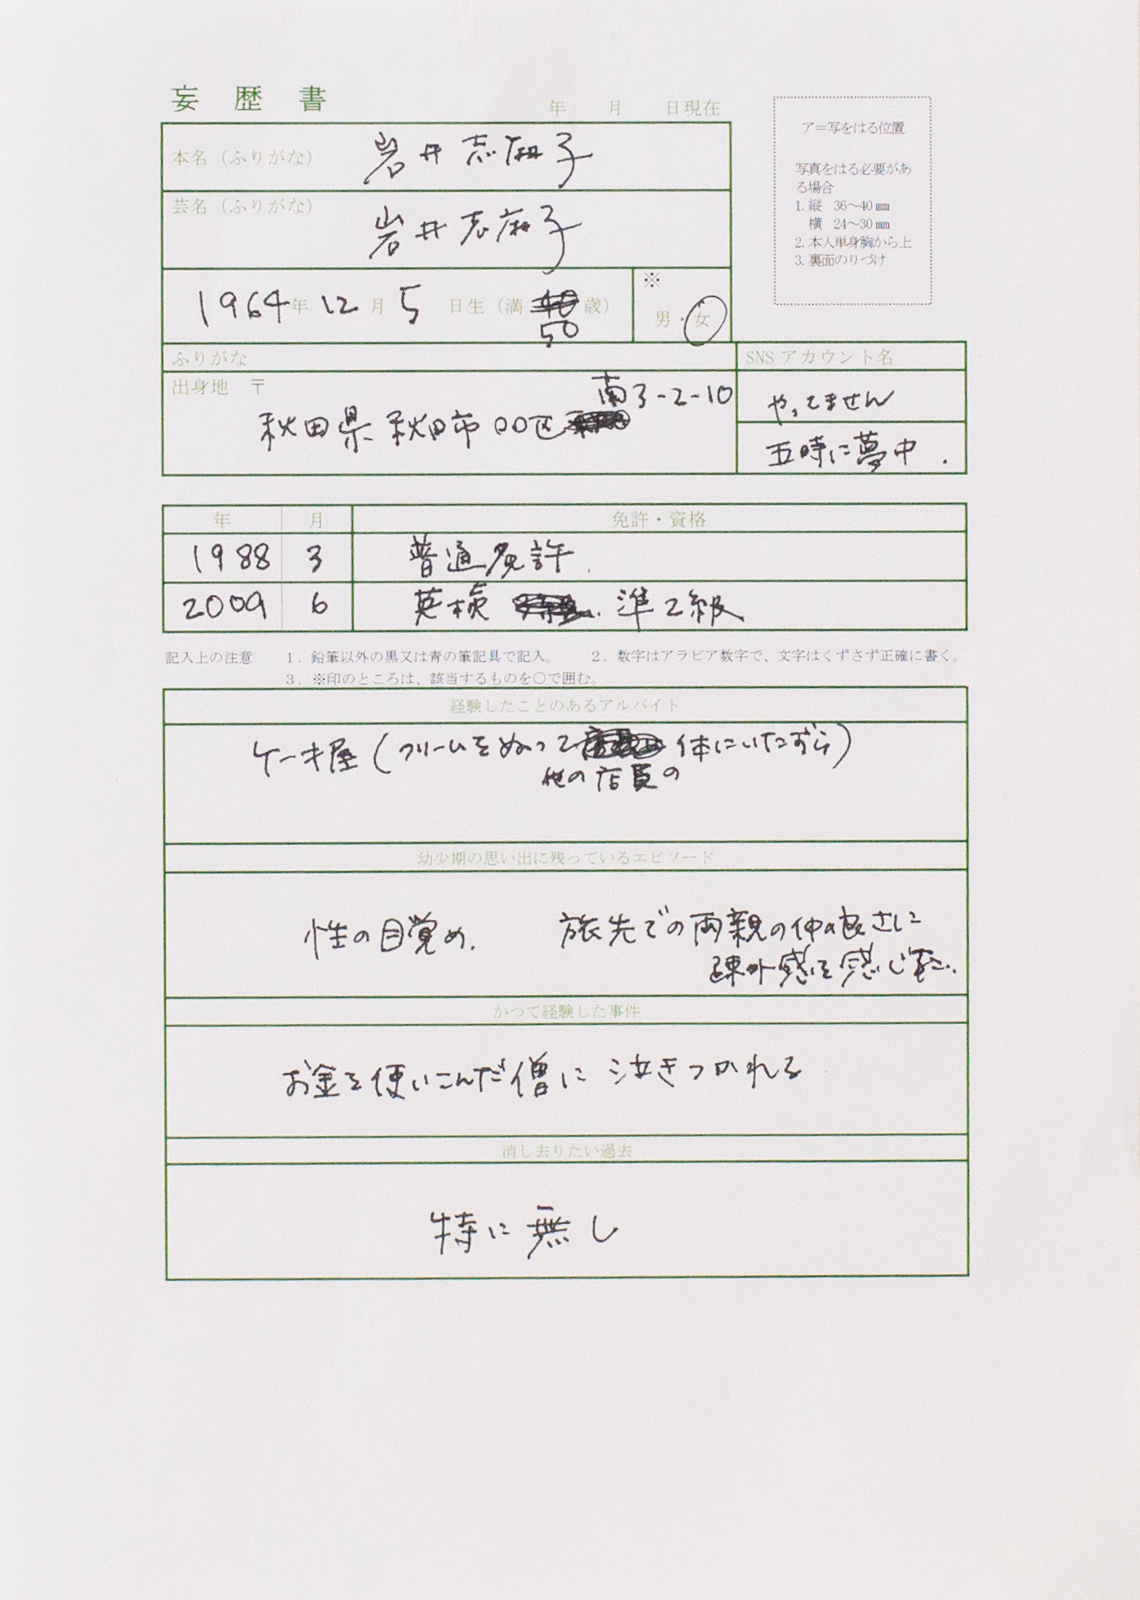 妄歴書
年 月 日現在
ア=写をはる位置
写真をはる必要があ
る場合
1. 縦 36〜40㎜
横 24〜30㎜
2. 本人単身胸から上
3. 裏面のりづけ
本名（ふりがな） 岩井志麻子
芸名（ふりがな） 岩井志麻子
1964年 12月 5日生（満 40 歳）
50
※
男・女
ふりがな
SNS アカウント名
出身地 〒
南3-2-10
秋田県秋田市〇〇区
やってません
五時に夢中.
年 月 免許・資格
1988 3 普通免許.
2009 6 英検 準2級
記入上の注意 1. 鉛筆以外の黒又は青の筆記具で記入。 2. 数字はアラビア数字で、文字はくずさず正確に書く。
3. ※印のところは、該当するものを○で囲む。
経験したことのあるアルバイト
ケーキ屋（クリームをぬって 体にいたずら）
他の店員の
幼少期の思い出に残っているエピソード
性の目覚め. 旅先での両親の仲の良さに
疎外感を感じた.
かつて経験した事件
お金を使いこんだ僧に泣きつかれる
消し去りたい過去
特に無し